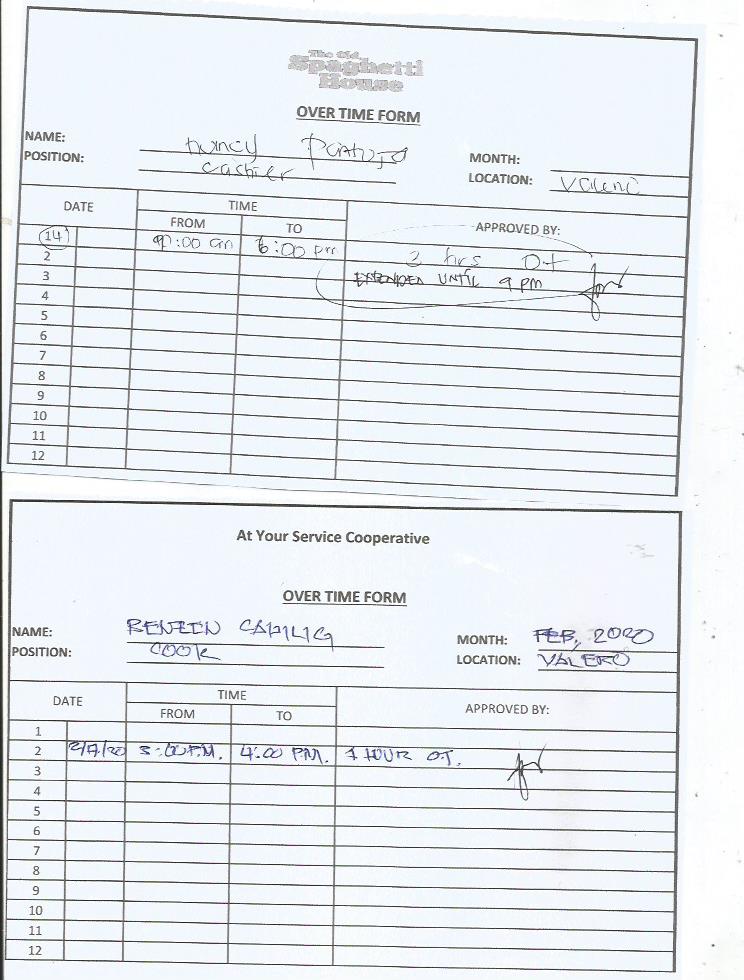 The Old
Spaghetti
House
OVER TIME FORM
NAME:
POSITION: cashier
MONTH:
LOCATION:
DATE TIME APPROVED BY:
FROM TO
14 :00 am 6:00 pm
2 hrs OT
3 EXTENDED UNTIL 9 PM
4
5
6
7
8
9
10
11
12
At Your Service Cooperative
OVER TIME FORM
NAME: CAPILIG
POSITION: COOK
MONTH: FEB, 2020
LOCATION: VALERO
DATE TIME APPROVED BY:
FROM TO
1
2 2/7/20 3:00 P.M. 4:00 P.M. 1 HOUR O.T.
3
4
5
6
7
8
9
10
11
12